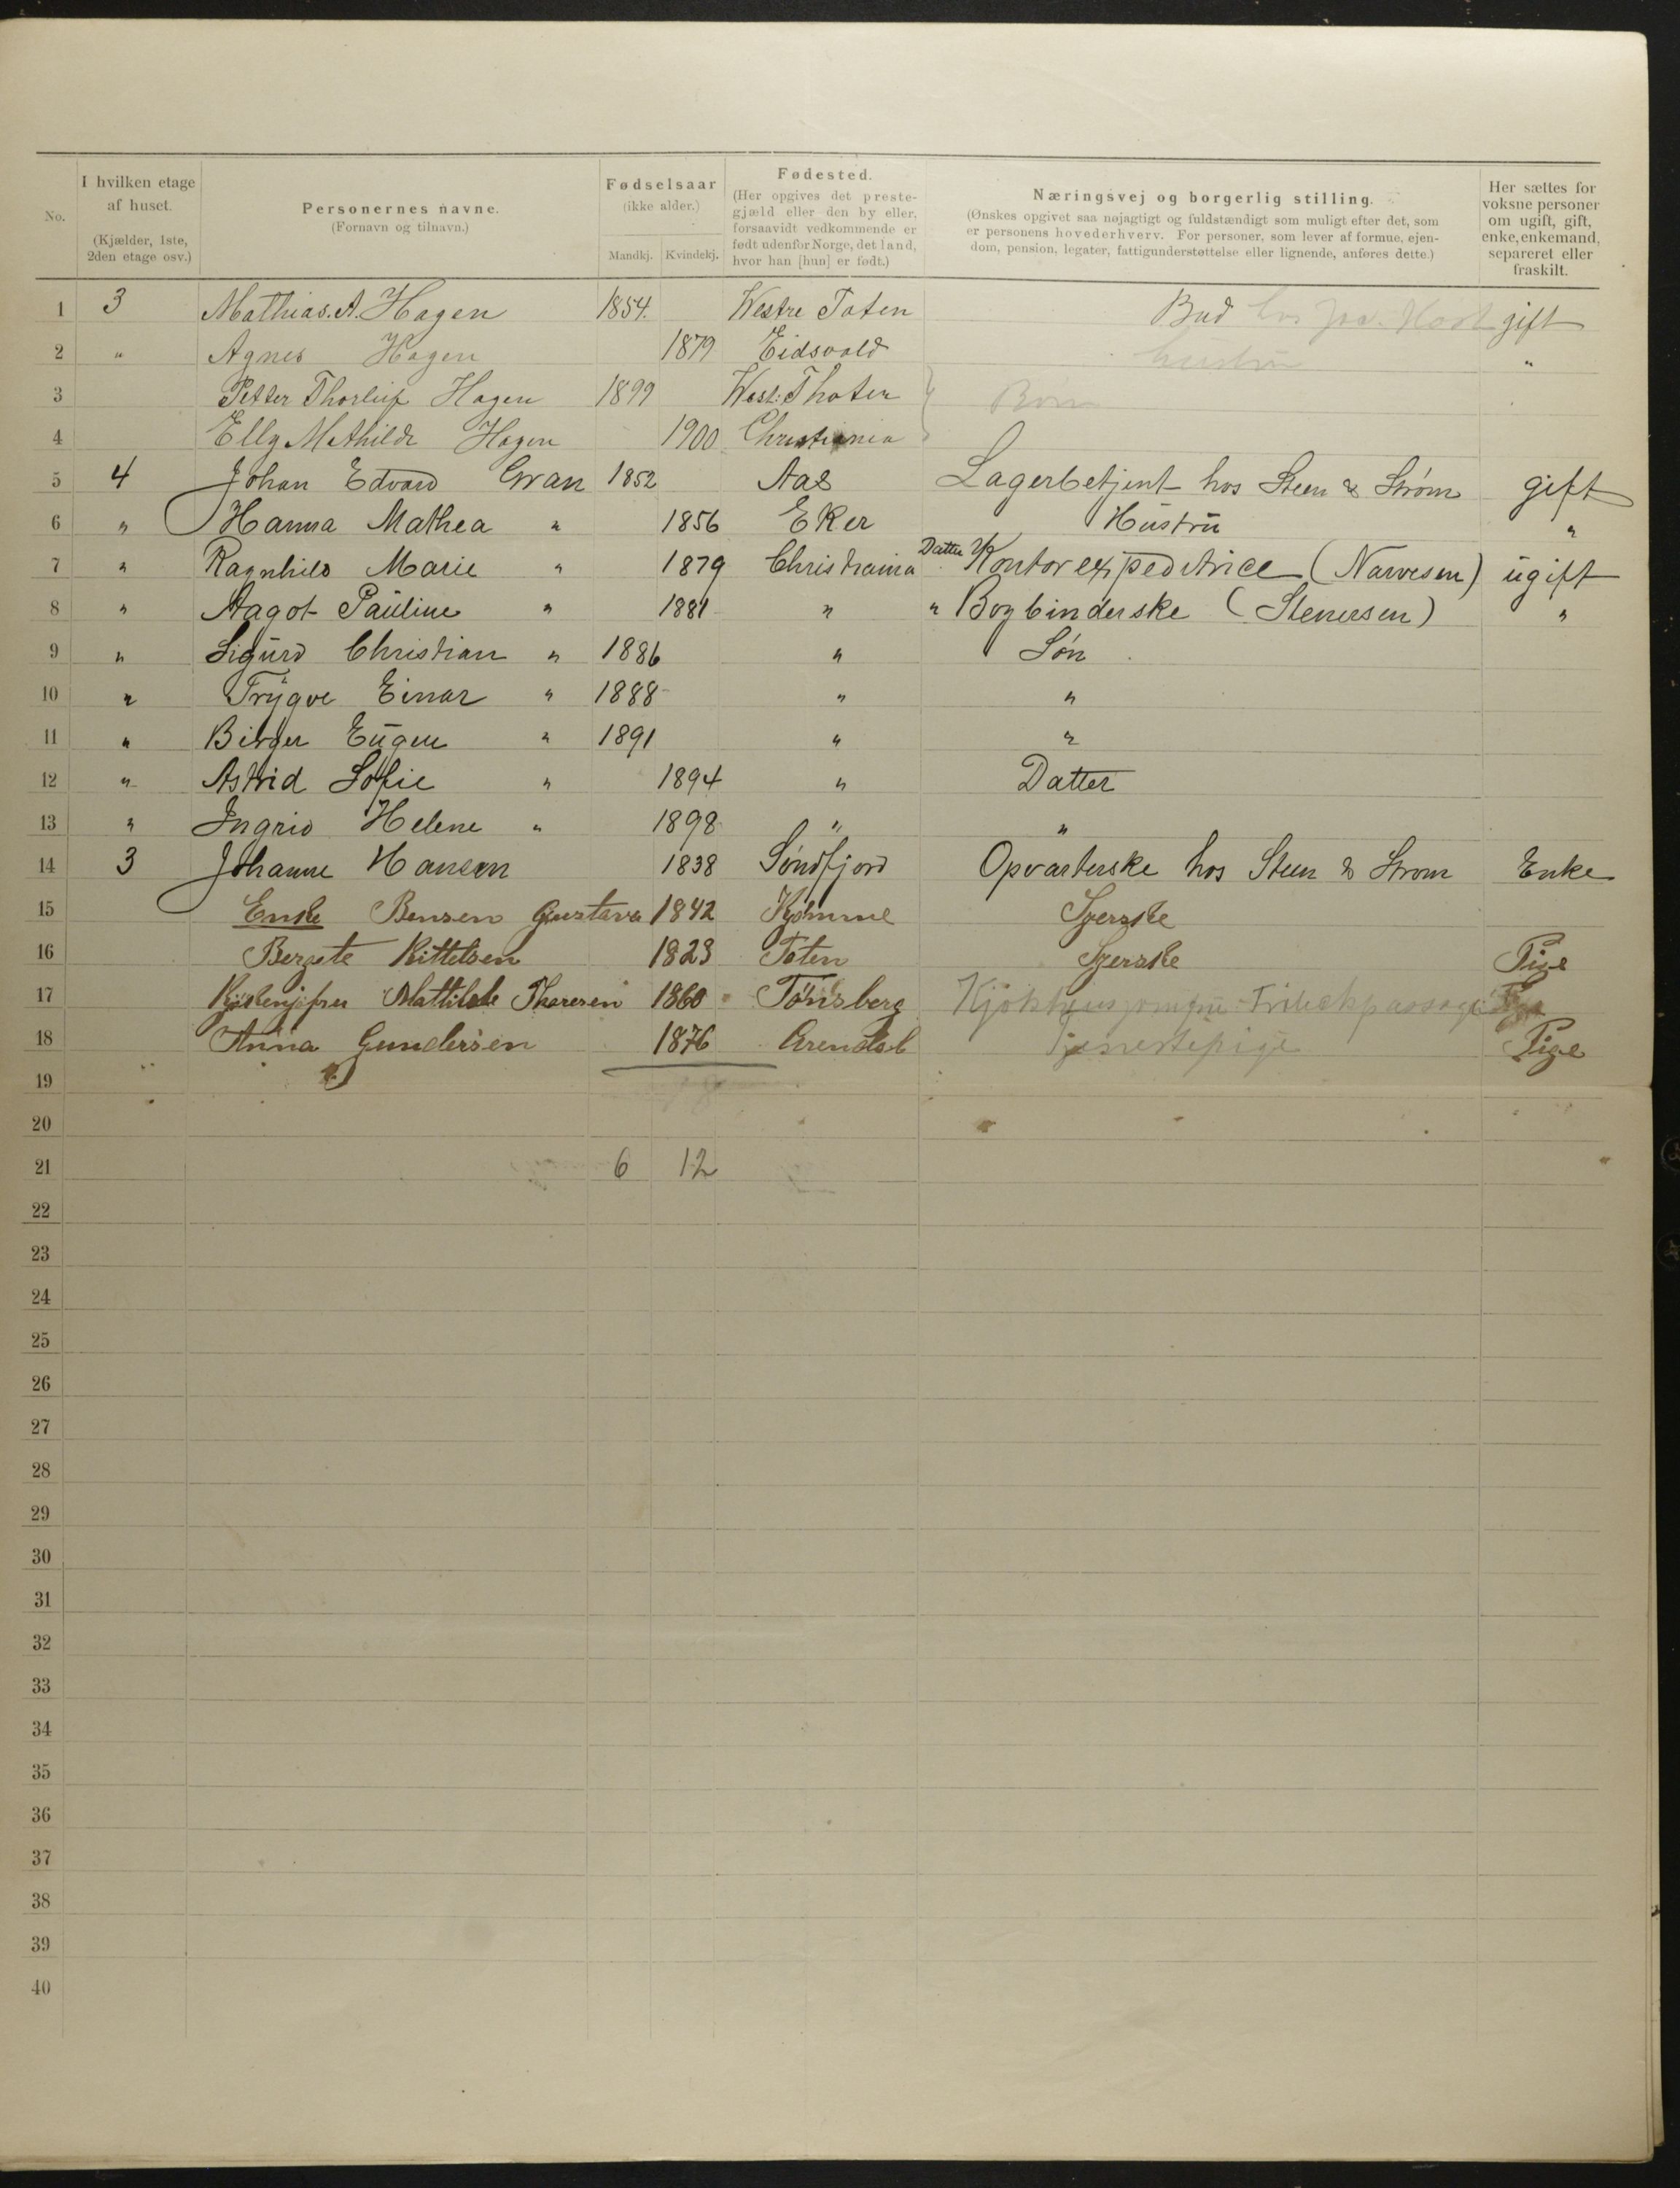 No.
I hvilken etage af huset. (Kjælder, 1ste, 2den etage osv.)
Personernes navne. (Fornavn og tilnavn.)
Fødselsaar (ikke alder.) Mandkj. Kvindekj.
Fødested. (Her opgives det prestegjæld eller den by eller, forsaavidt vedkommende er født udenfor Norge, det land, hvor han [hun] er født.)
Næringsvej og borgerlig stilling. (Ønskes opgivet saa nøjagtigt og fuldstændigt som muligt efter det, som er personens hovederhverv. For personer, som lever af formue, ejendom, pension, legater, fattigunderstøttelse eller lignende, anføres dette.)
Her sættes for voksne personer om ugift, gift, enke, enkemand, separeret eller fraskilt.
1 3 Mathias. A. Hagen 1854. Westre Toten Bud hos gift
2 " Agnes Hagen 1879 Eidsvold hustru "
3 Petter Thorleif Hagen 1899 West: Thoten } Børn
4 Elly Mathilde Hagen 1900 Christiania
5 4 Johan Edvard Gran 1852 Aas Lagerbetjent hos Steen & Strøm gift
6 " Hanna Mathea " 1856 Eker Hustru "
7 " Ragnhild Marie " 1879 Christiania Datter Kontorexpeditrice (Narvesen) ugift
8 " Aagot Pauline " 1881 " " Bogbinderske (Stenersen) "
9 " Sigurd Christian " 1886 " Søn
10 " Trygve Einar " 1888 " "
11 " Birger Eugen " 1891 " "
12 " Astrid Sofie " 1894 " Datter
13 " Ingrid Helene " 1898 " "
14 3 Johanne Hansen 1838 Søndfjord Opvarterske hos Steen & Strøm Enke
15 Enke Bensen Gustava 1842 Syerske
16 Bergete Kittelsen 1823 Toten Syerske Pige
17 Mattilde Thoresen 1860 Tønsberg
18 Anna Gundersen 1876 Arendal Tjenestepige Pige
19
20
21 6 12
22
23
24
25
26
27
28
29
30
31
32
33
34
35
36
37
38
39
40